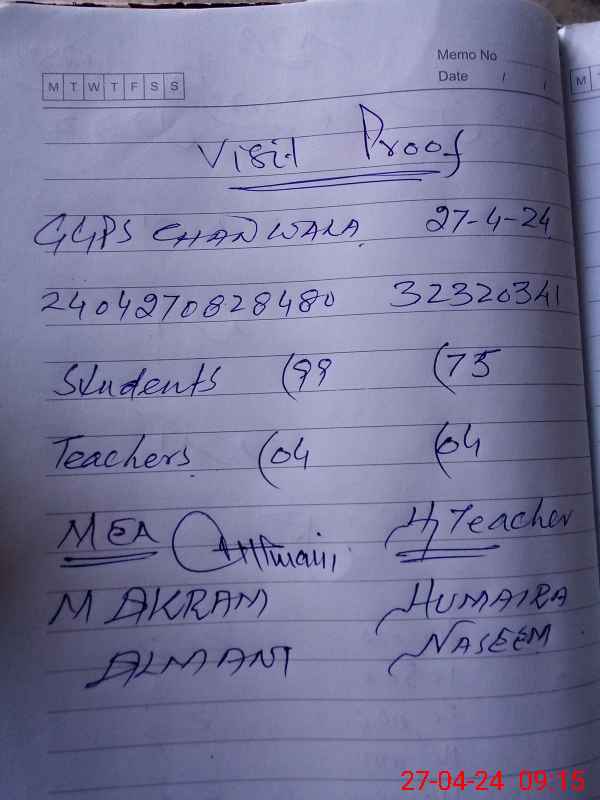 Memo No
Date / /
M T W T F S S
M
Visit Proof
GGPS CHANWALA 27-4-24
2404270828480 32320341
Students (99 (75
Teachers (04 (04
MEA H/Teacher
M AKRAM HUMAIRA
ALMANI NASEEM
27-04-24 09:15